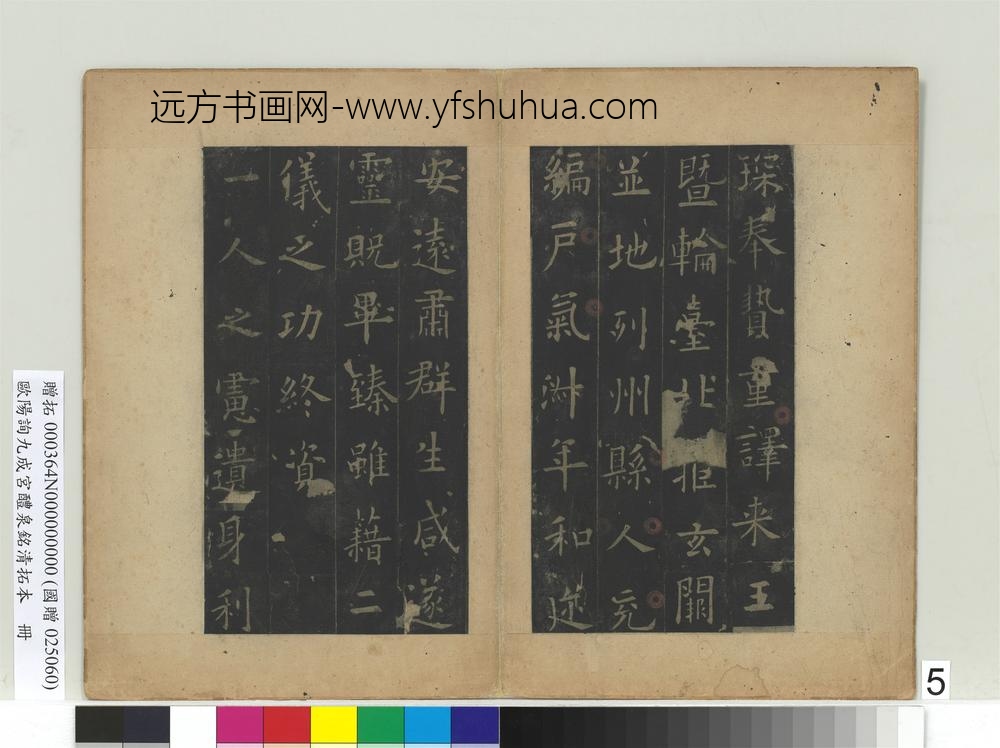 远方书画网-www.yfshuhua.com
琛奉贄重譯来王
暨輪臺北拒玄闕
並地列州縣人充
編戶氣淑年和迩
安遠肅群生咸遂
靈貺畢臻雖藉二
儀之功終資
一人之慮遺身利
贈拓 000364N000000000 (國贈 025060)
歐陽詢九成宮醴泉銘清拓本 冊
5